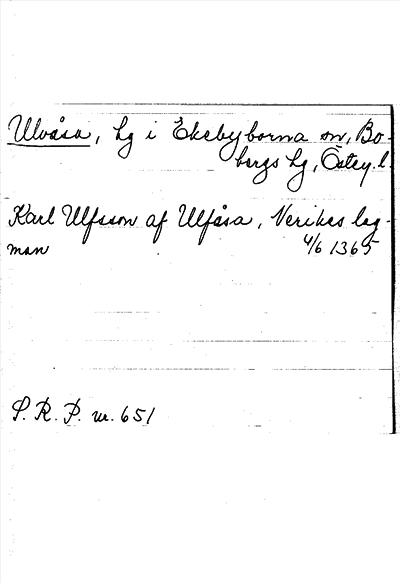 Ulvåsa, hg i Ekebyborna sn, Bo-
bergs hg, Östg. l.
Karl Ulfsson af Ulfåsa, Nerikes lag-
man 4/6 1365
S. R. P. nr. 651